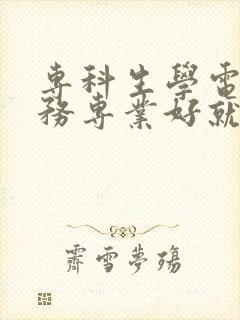 專科生學電
務專業好就
霽雪夢殤